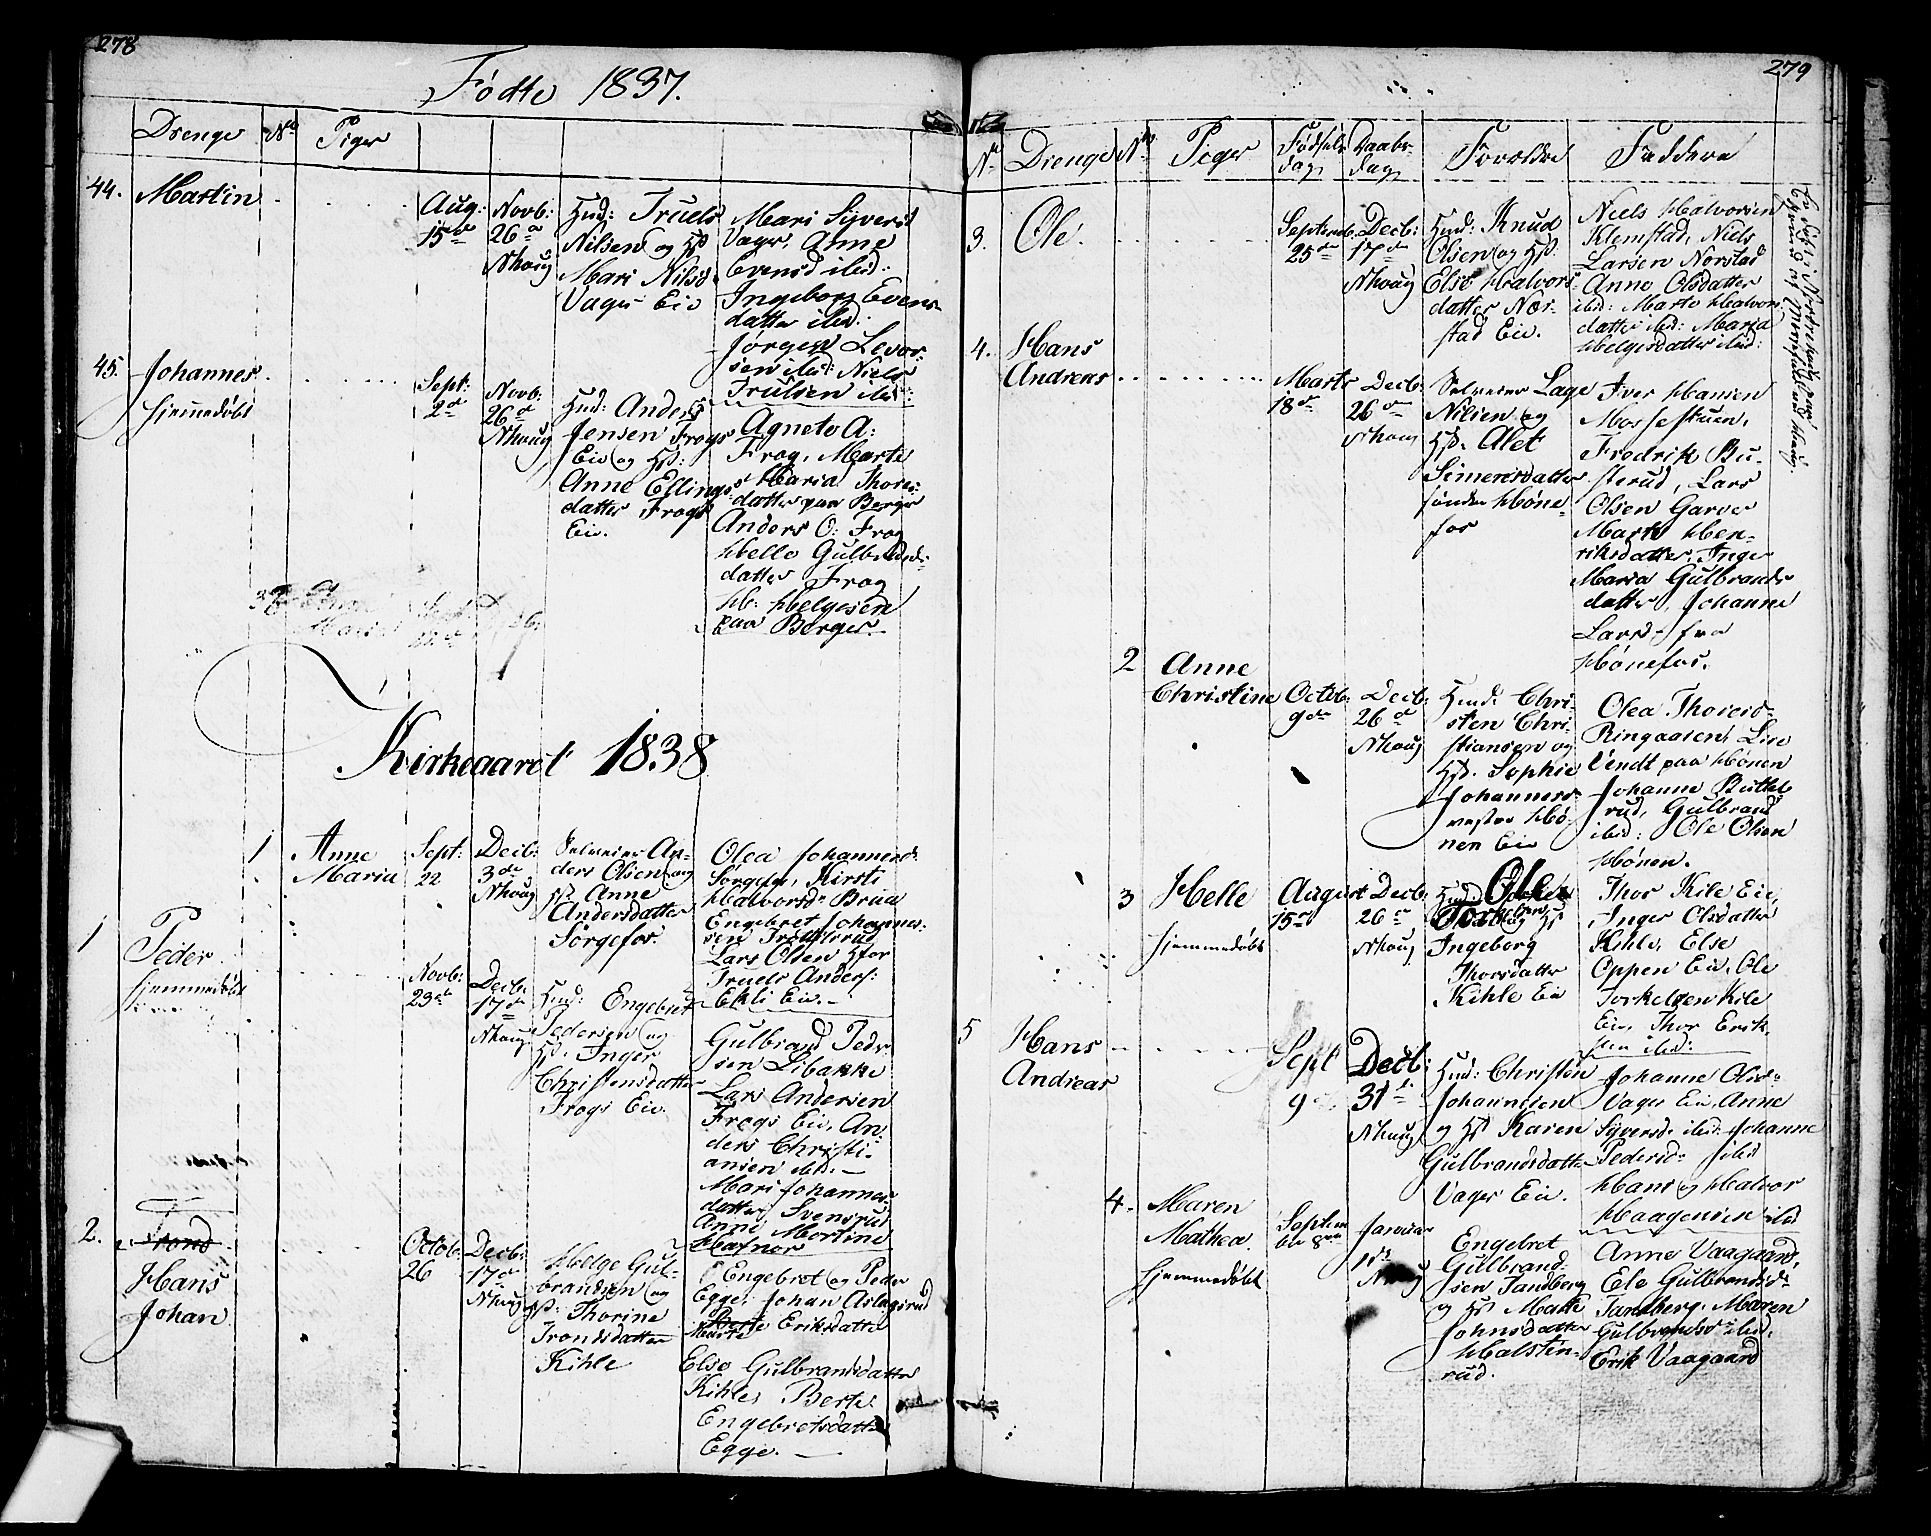 278
Födte 1837.
Drenge No Piger
44. Martin
Aug:
15de
Novb:
26de
Nhoug
Huusm: Truels
Nilsen og Hst
Mari Nilsd:
Vager Eie
Mari Syversd
Vager, Anne
Evensd ibid:
Ingeborg Evens-
datter ibid:
Jörgen Levor-
sen ibid: Niels
Trulsen ibid:
45. Johannes
hjemmedöbt
Sept:
2de
Novb:
26de
Nhoug
Anders
Jensen Frogs
Eie og Hst:
Anne Ellings-
datter Frogs
Eie.
Agnete A:
Frog, Marte
Maria Thores-
datter paa Berger
Anders O: Frog
Helle Gulbrands-
datter Frog
H: Helgesen
paa Berger.
Kirkeaaret 1838
1 Anne
Maria
Sept:
22
Decb:
3de
Nhoug
Selveier An-
ders Olsen og
Hst Anne
Andersdatter
Sörgefos.
Olea Johannesd:
Sörgefos, Kirsti
Halvorsd: Brua
Engebret Johannes-
sen
Lars Olsen Hfos
Truels Anders:
Ekli Eie.
1 Peder
hjemmedöbt
Novb:
23de
Decb:
17de
Nhoug
Engebret
Pedersen og
Hst: Inger
Christensdatter
Frogs Eie.
Gulbrand Peder-
sen Libakke
Lars Andersen
Frogs Eie, An-
ders Christi-
ansen ibid.
Mari Johannes-
datter Svensrud
Anne Mortine
Hafnor
2. Trond
Hans
Johan
Octob:
26
Decb:
17de
Nhoug
Helge Gul-
brandsen og
Hst: Thorine
Trondsdatter
Kihle
Engebret og Peder
Egge, Johan Aslagsrud
Berte Eriksdatter
Marte
Else Gulbrandsdatter
Kihle, Berte
Engebretsdatter
Egge.
279
No Drenge No Piger Födsels
dag Daabs-
dag Forældre Faddere
3. Ole.
Septemb:
25de
Decb:
17de
Nhoug
Knud
Olsen og Hst:
Else Halvors-
datter Nor-
stad Eie.
Niels Halvorsen
Klemstad, Niels
Larsen Norstad
Anne Olsdatter
ibid: Marte Halvors-
datter ibid: Maria
Helgesdatter ibid:
4. Hans
Andreas
Marts
18de
Decb:
26de
Nhoug
Selveier Lage
Nilsen og
Hst. Alet
Simensdatter
sönden Höne-
fos
Iver Hansen
Mossestuen,
Fredrik Bu-
sterud, Lars
Olsen Garver
Marte Hen-
riksdatter, Inger
Maria Gulbrands-
datter, Johanne
Larsd: fra
Hönefos.
2 Anne
Christine
Octob:
9de
Decb:
26de
Nhoug
Chri-
sten Chri-
stiansen og
Hst. Sophie
Johannesd:
vester Hö-
nen Eie
Olea Thoresd:
Ringaasen, Lise
Vendt paa Hönen
Johanne Buttle-
rud, Gulbrand
ibid: Ole Olsen
Hönen.
3 Helle
hjemmedöbt
August
15de
Decb:
26de
Nhoug
Ole
og Hst
Ingeborg
Thorsdatter
Kihle Eie
Thor Kile Eie,
Inger Olsdatter
Kihle, Else
Oppen Eie, Ole
Torkelsen Kile
Eie, Thor Erik-
sen ibid:
5 Hans
Andreas
Sept
9de
Decb:
31te
Nhoug
Christen
Johannesen
og Hst Karen
Gulbrandsdatter
Vager Eie.
Johanne Olsd:
Vager Eie, Anne
Syversd: ibid: Johanne
Pedersd: ibid
Hans og Halvor
Haagensen ibid
4. Maren
Mathea
hjemmedöbt
Septem
ber 8de
Januar
1te
Nhoug
Engebret
Gulbrand-
sen Tandberg
og Hst Mathe
Johnsdatter
Halstin-
rud.
Anne Vaagaard,
Ele Gulbrandsd:
Tandberg, Maren
Gulbrandsd: ibid.
Erik Vaagaard